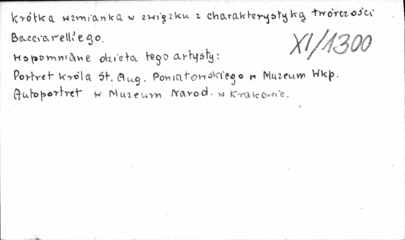 Krótka wzmianka w związku z charakterystyką twórczości
Bacciarelli'ego.
XI/1300
Wspomniane dzieła tego artysty:
Portret króla St. Aug. Poniatowskiego w Muzeum Wkp.
Autoportret w Muzeum Narod. w Krakowie.